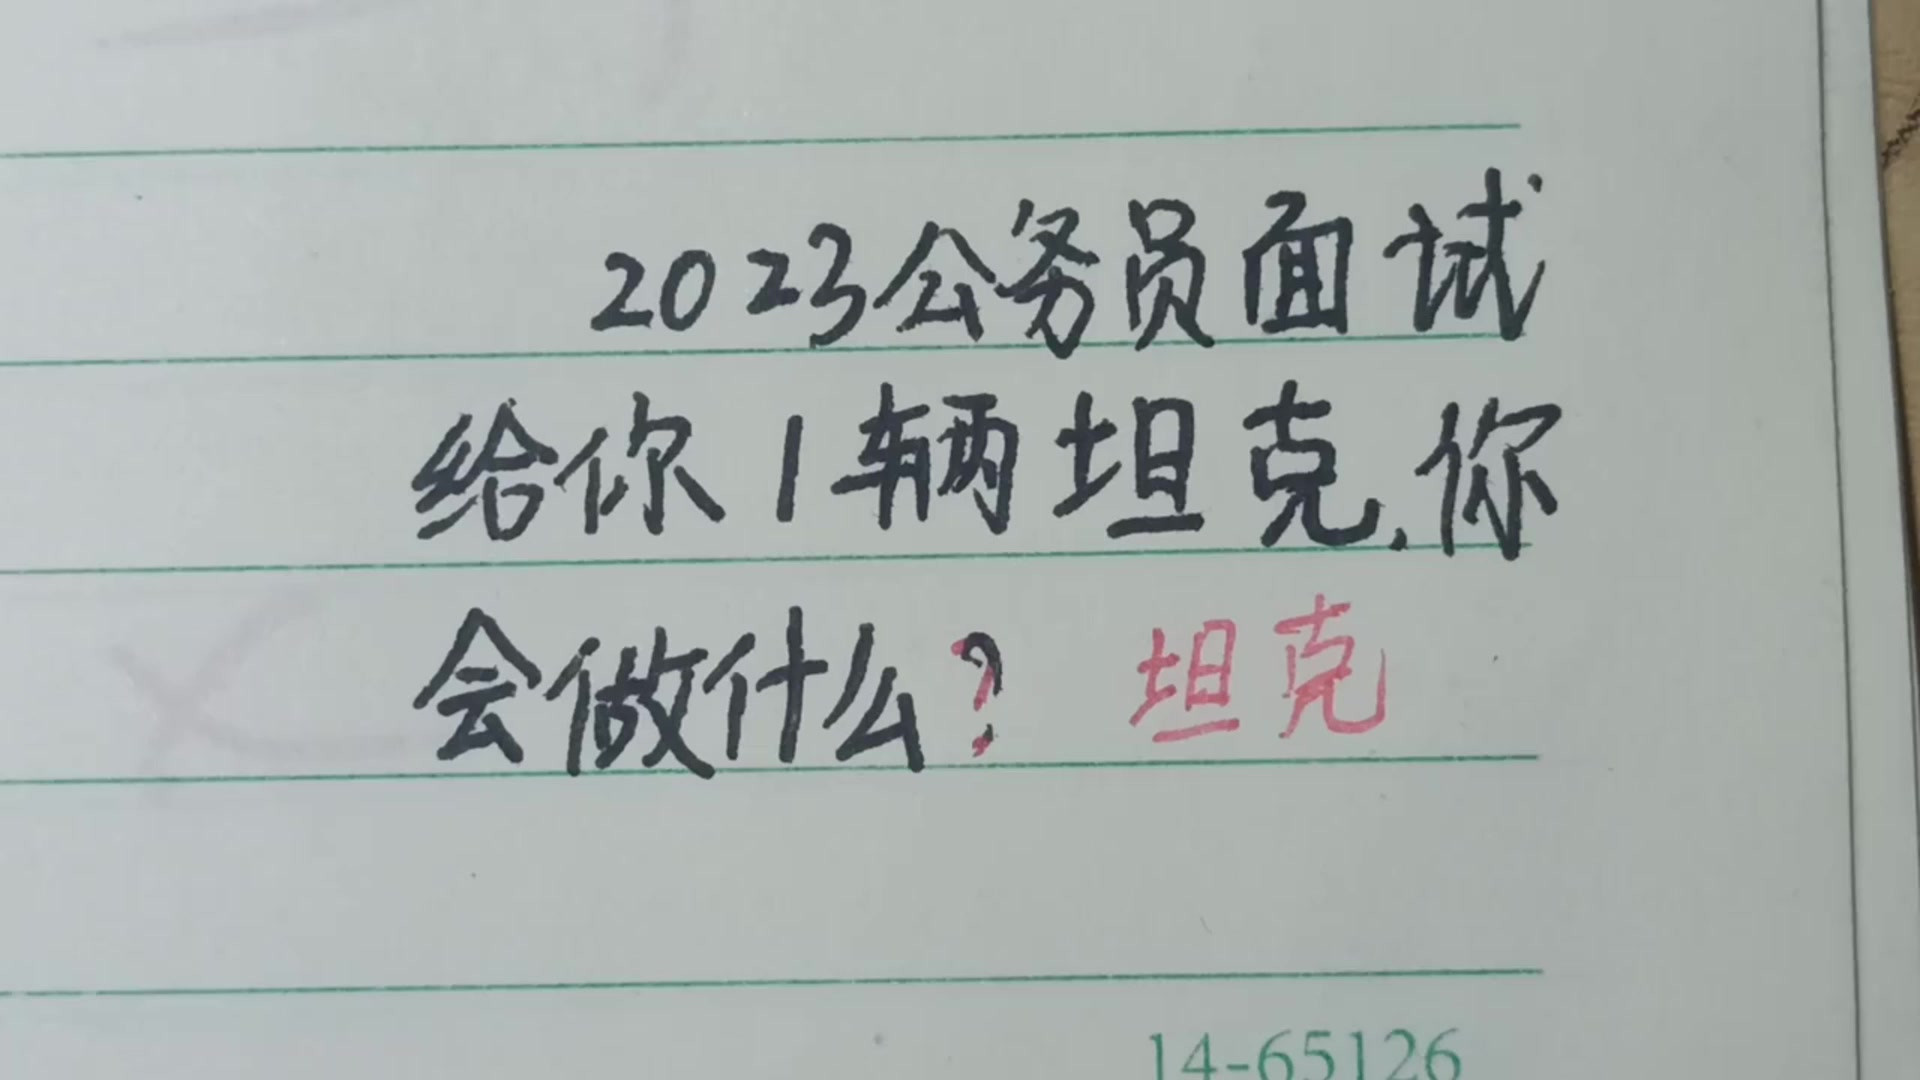 2023公务员面试
给你1辆坦克,你
会做什么? 坦克
14-65126